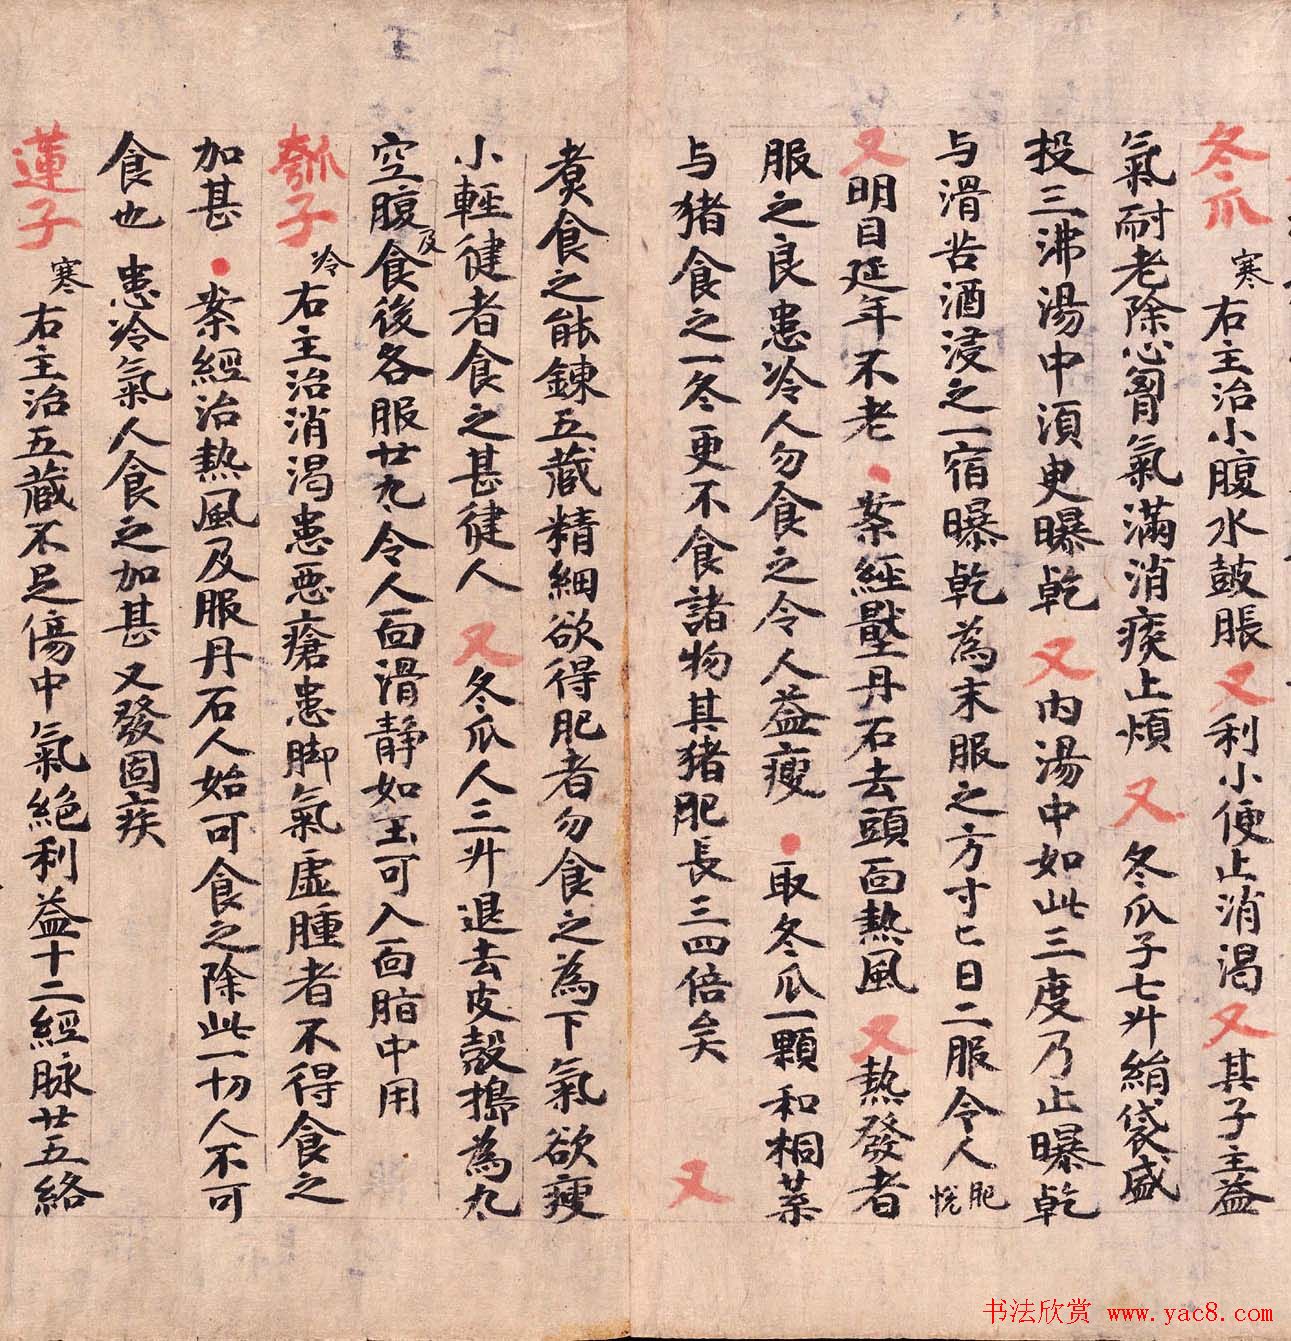 冬瓜 寒 右主治小腹水鼓脹 又利小便止消渴 又其子主益
氣耐老除心胷氣滿消痰止煩 又冬瓜子七升絹袋盛
投三沸湯中湏臾曝乾 又內湯中如此三度乃止曝乾
与滑苦酒浸之一宿曝乾為末服之方寸匕日二服令人肥悅
又明目延年不老 案經壓丹石去頭面熱風 又熱發者
服之良患冷人勿食之令人益瘦 取冬瓜一顆和桐葉
与猪食之一冬更不食諸物其猪肥長三四倍矣 又
煑食之能鍊五藏精細欲得肥者勿食之為下氣欲瘦
小輕健者食之甚健人 又冬瓜人三升退去皮殼擣為丸
空腹及食後各服廿丸令人面滑靜如玉可入面脂中用
瓠子 冷 右主治消渴患惡瘡患脚氣虛腫者不得食之
加甚 案經治熱風及服丹石人始可食之除此一切人不可
食也 患冷氣人食之加甚又發固疾
蓮子 寒 右主治五藏不足傷中氣絕利益十二經脉廿五絡
书法欣赏 www.yac8.com